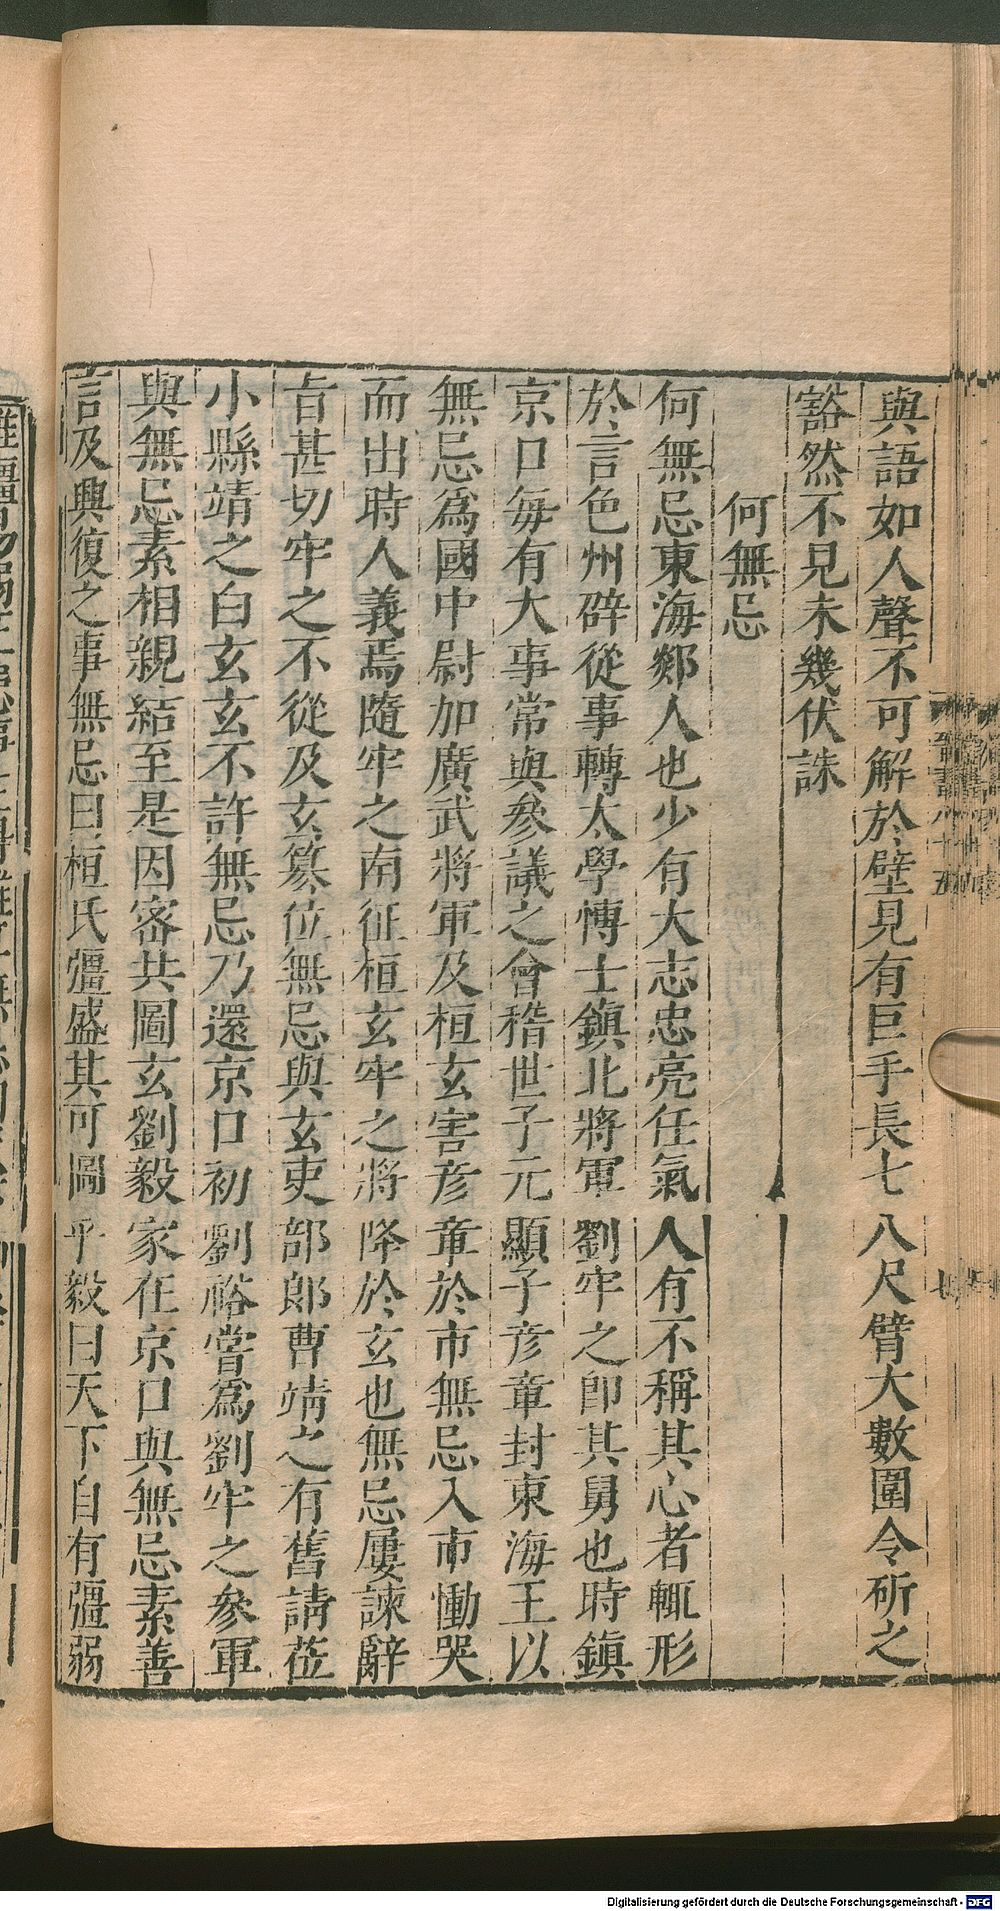 與語如人聲不可解於壁見有巨手長七八尺臂大數圍令斫之
豁然不見未幾伏誅
何無忌
何無忌東海郯人也少有大志忠亮任氣人有不稱其心者輒形
於言色州辟從事轉太學博士鎮北將軍劉牢之即其舅也時鎮
京口每有大事常與參議之會稽世子元顯子彦章封東海王以
無忌爲國中尉加廣武將軍及桓玄害彦章於市無忌入市慟哭
而出時人義焉隨牢之南征桓玄牢之將降於玄也無忌屢諫辭
旨甚切牢之不從及玄篡位無忌與玄吏部郎曹靖之有舊請莅
小縣靖之白玄玄不許無忌乃還京口初劉裕嘗爲劉牢之參軍
與無忌素相親結至是因密共圖玄劉毅家在京口與無忌素善
言及興復之事無忌曰桓氏彊盛其可圖乎毅曰天下自有彊弱
Digitalisierung gefördert durch die Deutsche Forschungsgemeinschaft - DFG